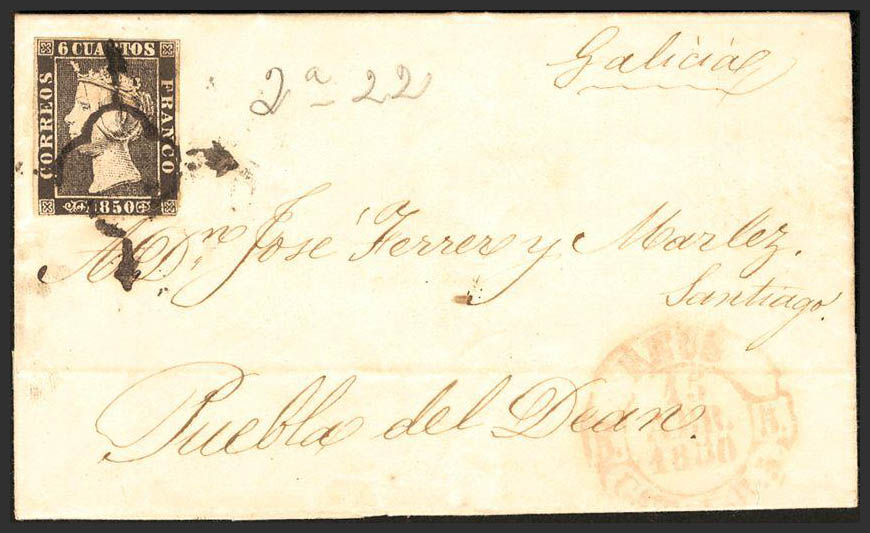 6 CUARTOS
CORREOS
FRANCO
1850
2ª 22
Galicia
A Dn José Ferrer y Marlez.
Santiago.
Puebla del Dean.
REUS
15
ABR.
1850